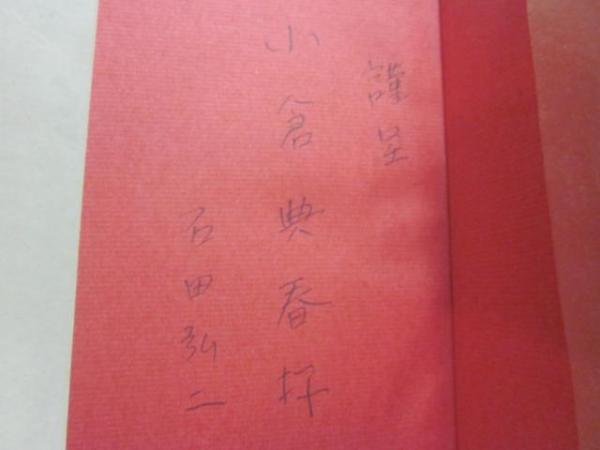 謹呈
小倉典春様
石田弘二